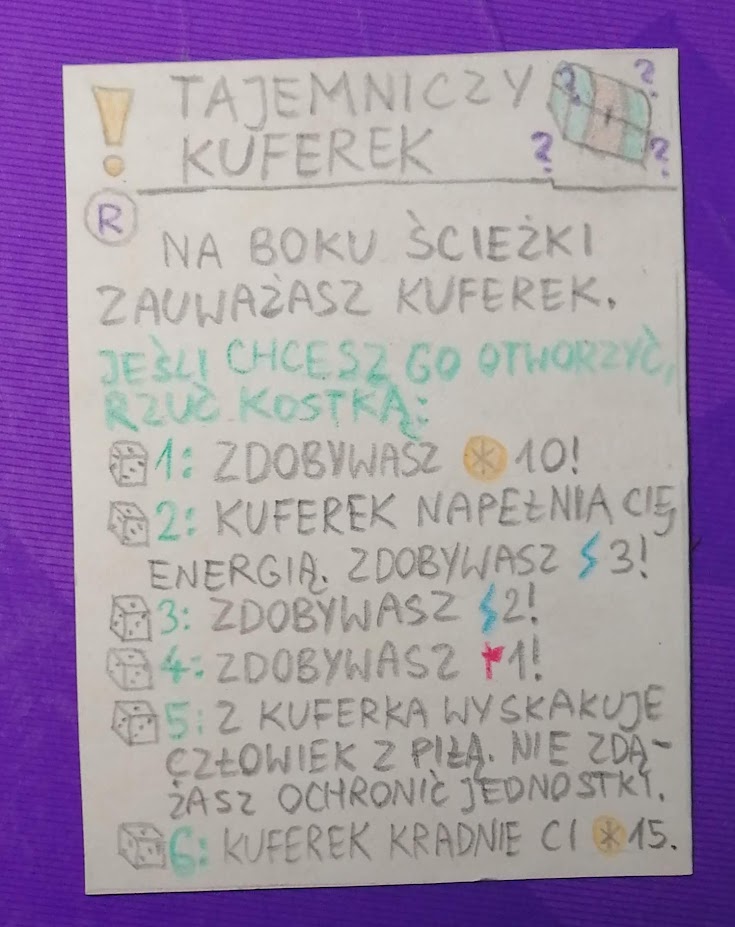 ! TAJEMNICZY
KUFEREK
? ? ? ?
R
NA BOKU ŚCIEŻKI
ZAUWAŻASZ KUFEREK.
JEŚLI CHCESZ GO OTWORZYĆ,
RZUĆ KOSTKĄ:
1: ZDOBYWASZ 10!
2: KUFEREK NAPEŁNIA CIĘ
ENERGIĄ. ZDOBYWASZ 3!
3: ZDOBYWASZ 2!
4: ZDOBYWASZ 1!
5: Z KUFERKA WYSKAKUJE
CZŁOWIEK Z PIŁĄ. NIE ZDĄ-
ŻASZ OCHRONIĆ JEDNOSTKI.
6: KUFEREK KRADNIE CI 15.